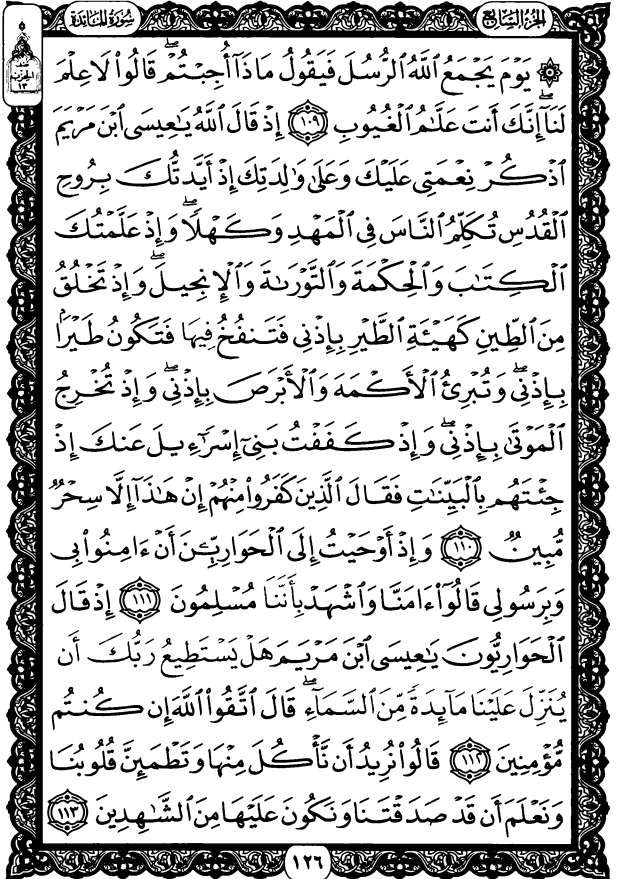 الجزء السابع سورة المائدة
الحزب ١٣
۞ يَوْمَ يَجْمَعُ ٱللَّهُ ٱلرُّسُلَ فَيَقُولُ مَاذَآ أُجِبْتُمْ ۖ قَالُوا۟ لَا عِلْمَ
لَنَآ ۖ إِنَّكَ أَنتَ عَلَّٰمُ ٱلْغُيُوبِ ١٠٩ إِذْ قَالَ ٱللَّهُ يَٰعِيسَى ٱبْنَ مَرْيَمَ
ٱذْكُرْ نِعْمَتِى عَلَيْكَ وَعَلَىٰ وَٰلِدَتِكَ إِذْ أَيَّدتُّكَ بِرُوحِ
ٱلْقُدُسِ تُكَلِّمُ ٱلنَّاسَ فِى ٱلْمَهْدِ وَكَهْلًا ۖ وَإِذْ عَلَّمْتُكَ
ٱلْكِتَٰبَ وَٱلْحِكْمَةَ وَٱلتَّوْرَىٰةَ وَٱلْإِنجِيلَ ۖ وَإِذْ تَخْلُقُ
مِنَ ٱلطِّينِ كَهَيْـَٔةِ ٱلطَّيْرِ بِإِذْنِى فَتَنفُخُ فِيهَا فَتَكُونُ طَيْرًۢا
بِإِذْنِى ۖ وَتُبْرِئُ ٱلْأَكْمَهَ وَٱلْأَبْرَصَ بِإِذْنِى ۖ وَإِذْ تُخْرِجُ
ٱلْمَوْتَىٰ بِإِذْنِى ۖ وَإِذْ كَفَفْتُ بَنِىٓ إِسْرَٰٓءِيلَ عَنكَ إِذْ
جِئْتَهُم بِٱلْبَيِّنَٰتِ فَقَالَ ٱلَّذِينَ كَفَرُوا۟ مِنْهُمْ إِنْ هَٰذَآ إِلَّا سِحْرٌ
مُّبِينٌ ١١٠ وَإِذْ أَوْحَيْتُ إِلَى ٱلْحَوَارِيِّۦنَ أَنْ ءَامِنُوا۟ بِى
وَبِرَسُولِى قَالُوٓا۟ ءَامَنَّا وَٱشْهَدْ بِأَنَّنَا مُسْلِمُونَ ١١١ إِذْ قَالَ
ٱلْحَوَارِيُّونَ يَٰعِيسَى ٱبْنَ مَرْيَمَ هَلْ يَسْتَطِيعُ رَبُّكَ أَن
يُنَزِّلَ عَلَيْنَا مَآئِدَةً مِّنَ ٱلسَّمَآءِ ۖ قَالَ ٱتَّقُوا۟ ٱللَّهَ إِن كُنتُم
مُّؤْمِنِينَ ١١٢ قَالُوا۟ نُرِيدُ أَن نَّأْكُلَ مِنْهَا وَتَطْمَئِنَّ قُلُوبُنَا
وَنَعْلَمَ أَن قَدْ صَدَقْتَنَا وَنَكُونَ عَلَيْهَا مِنَ ٱلشَّٰهِدِينَ ١١٣
١٢٦